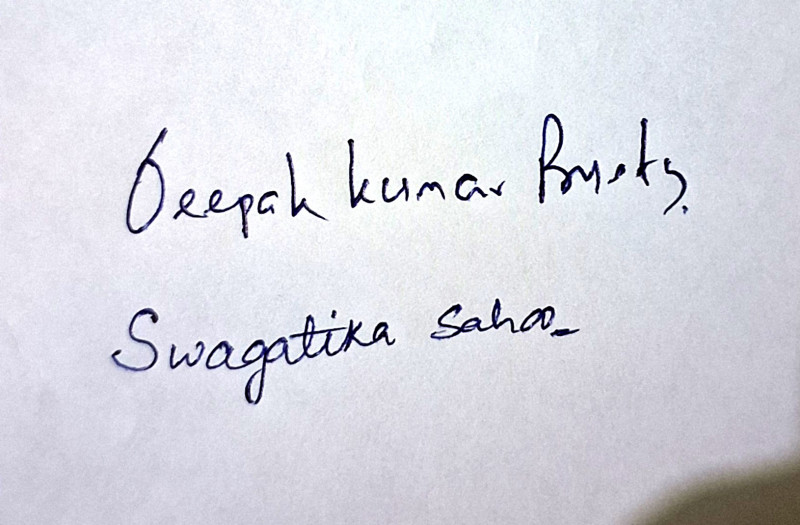 Deepak kumar
Swagatika Sahoo